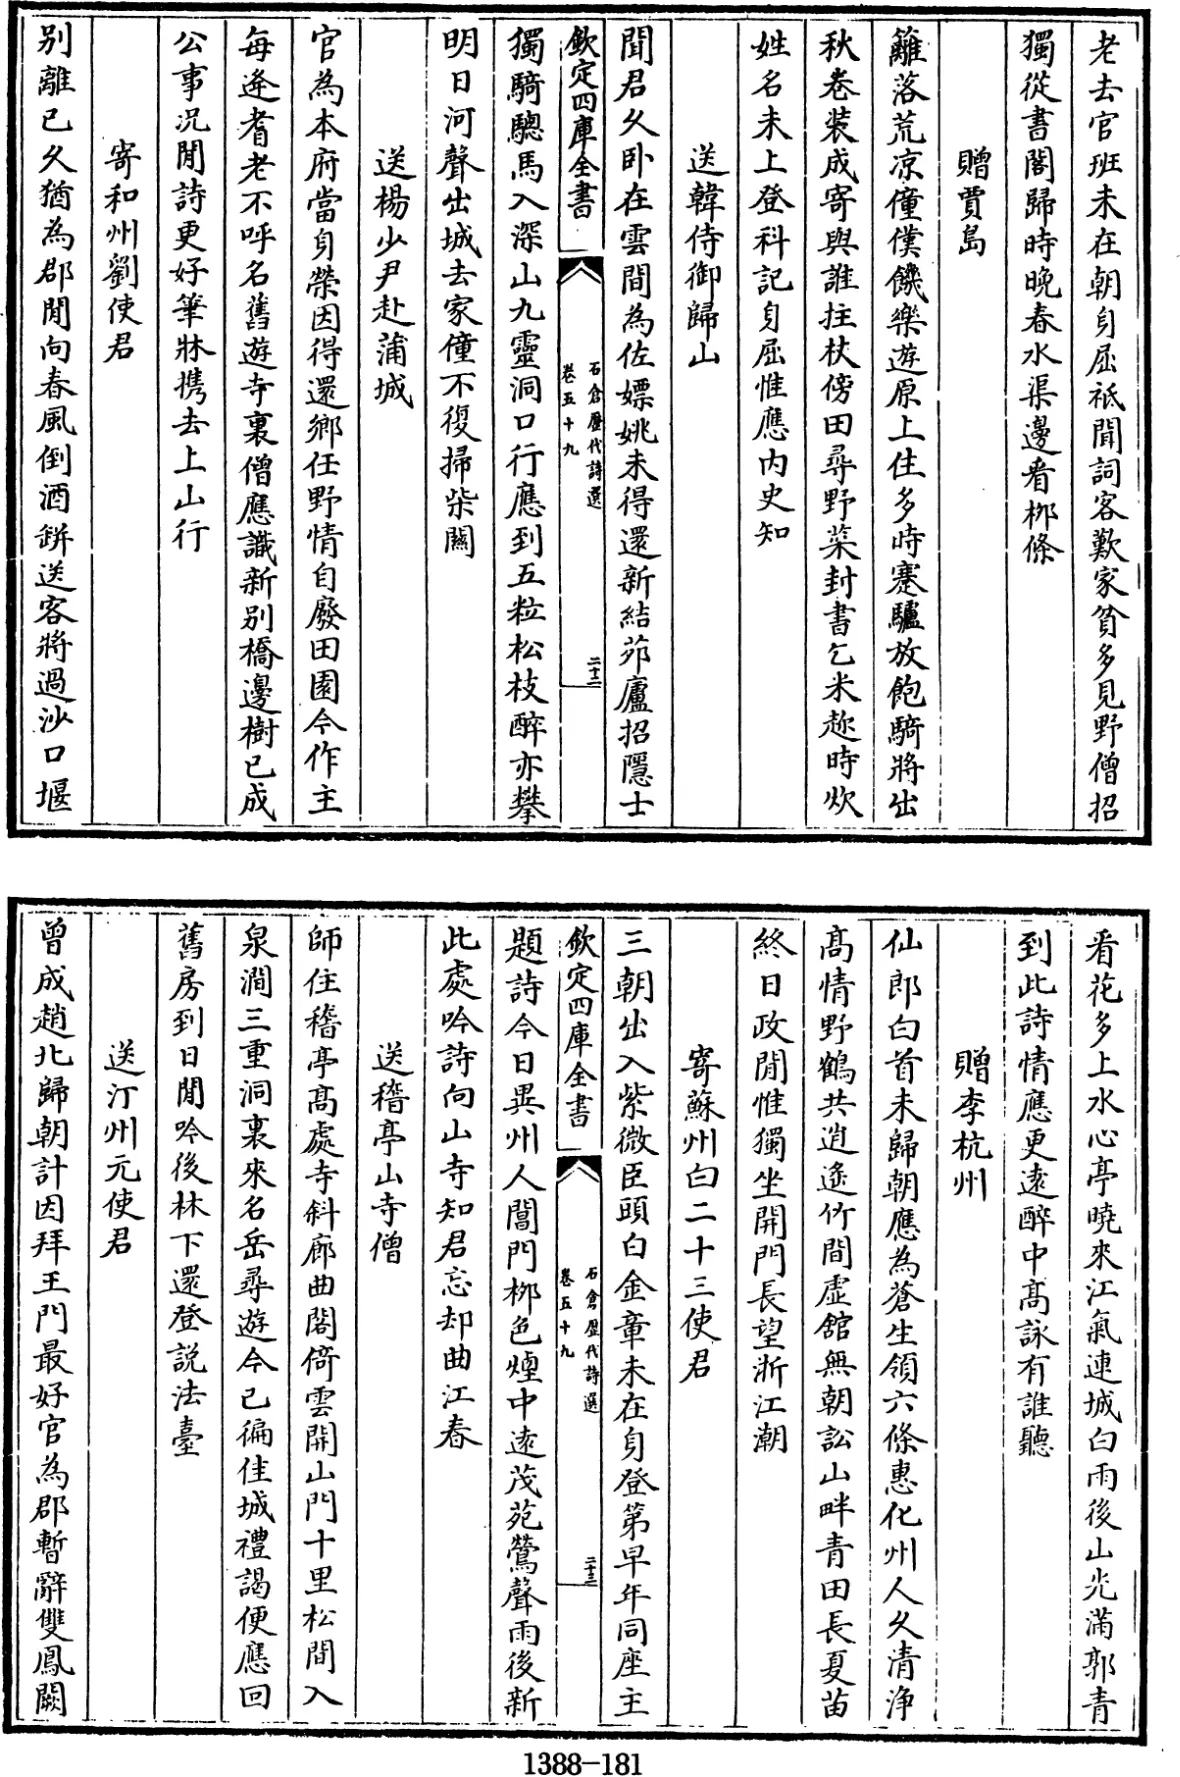 老去官班未在朝身屈祇聞詞客歎家貧多見野僧招
獨從書閣歸時晚春水渠邊看栁條
贈賈島
籬落荒凉僮僕饑樂遊原上住多時蹇驢放飽騎將出
秋卷装成寄與誰拄杖傍田尋野菜封書乞米趂時炊
姓名未上登科記身屈惟應内史知
送韓侍御歸山
聞君久卧在雲間為佐嫖姚未得還新結茆廬招隠士
欽定四庫全書
石倉歴代詩選
卷五十九
二十二
獨騎驄馬入深山九靈洞口行應到五粒松枝醉亦攀
明日河聲出城去家僮不復掃柴關
送楊少尹赴蒲城
官為本府當身榮因得還鄉任野情自廢田園今作主
每逢耆老不呼名舊遊寺裏僧應識新别橋邊樹已成
公事况閒詩更好筆牀携去上山行
寄和州劉使君
别離已久猶為郡閒向春風倒酒缾送客將過沙口堰
看花多上水心亭曉來江氣連城白雨後山光滿郭青
到此詩情應更逺醉中髙詠有誰聽
贈李杭州
仙郎白首未歸朝應為蒼生領六條惠化州人久清浄
髙情野鶴共逍遥竹間虚舘無朝訟山畔青田長夏苗
終日政閒惟獨坐開門長望浙江潮
寄蘇州白二十三使君
三朝出入紫微臣頭白金章未在身登第早年同座主
欽定四庫全書
石倉歴代詩選
卷五十九
二十三
題詩今日異州人閶門栁色煙中逺茂苑鶯聲雨後新
此處吟詩向山寺知君忘却曲江春
送稽亭山寺僧
師住稽亭髙處寺斜廊曲閣倚雲開山門十里松間入
泉澗三重洞裏來名岳尋遊今已徧佳城禮謁便應回
舊房到日閒吟後林下還登説法臺
送汀州元使君
曾成趙北歸朝計因拜王門最好官為郡暫辭雙鳳闕
1388-181